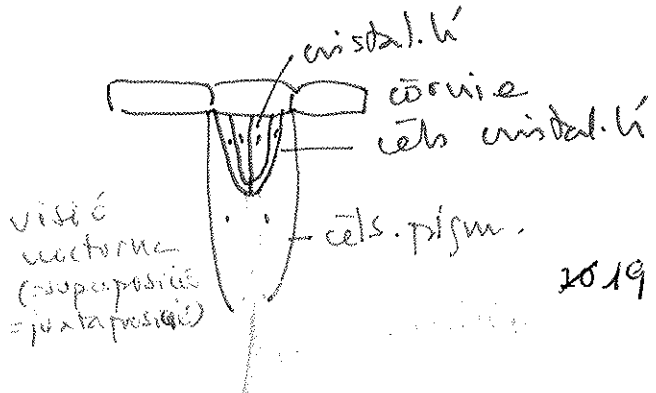 cristal.lí
còrnia
cèls cristal.lí
cèls. pigm.
visió
nocturna
(superposició
=juxtaposició)
19